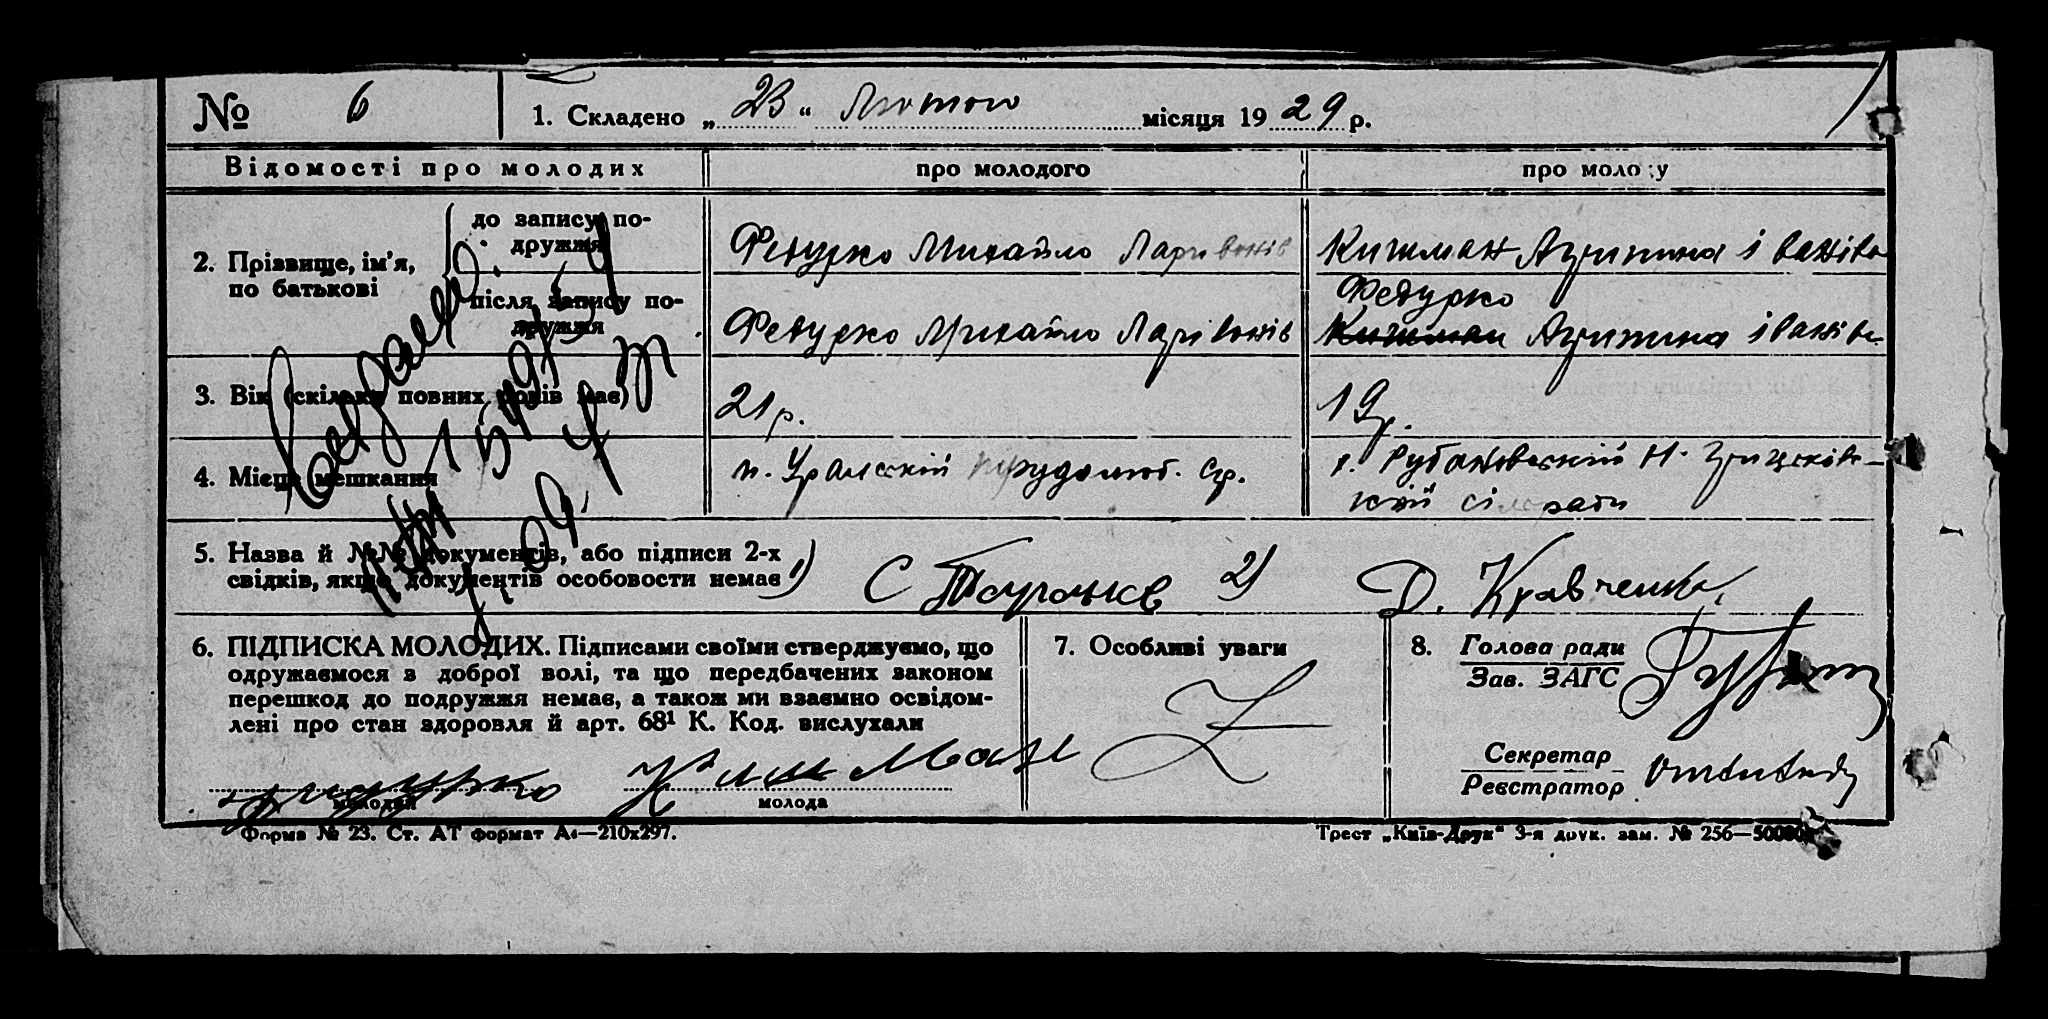 № 6 1. Складено „23“ Лютого місяця 1929 р.
Відомості про молодих про молодого про молоду
2. Прізвище, ім'я, по батькові
до запису подружжя
Федурко Михайло Ларивонів Кишман Агрипина Іванівн
Федурко
після запису подружжя
Федурко Михайло Ларівонів Кишман Агрипина Іванівн
3. Вік (скільки повних років має) 21 р. 19 р.
4. Місце мешкання
х. Рубановський Н.
сільради
5. Назва й №№ документів, або підписи 2-х
свідків, якщо документів особовости немає 1) С 2) Д. Кравченко
6. ПІДПИСКА МОЛОДИХ. Підписами своїми стверджуємо, що
одружаємося з доброї волі, та що передбачених законом
перешкод до подружжя немає, а також ми взаємно освідом-
лені про стан здоровля й арт. 68¹ К. Код. вислухали
Федурко Кишман
молодий молода
7. Особливі уваги
8. Голова ради
Зав. ЗАГС
Секретар
Реєстратор
Форма № 23. Ст. АТ формат А₄—210х297.
Трест „Київ-Друк“ 3-я друк. зам. № 256—50000